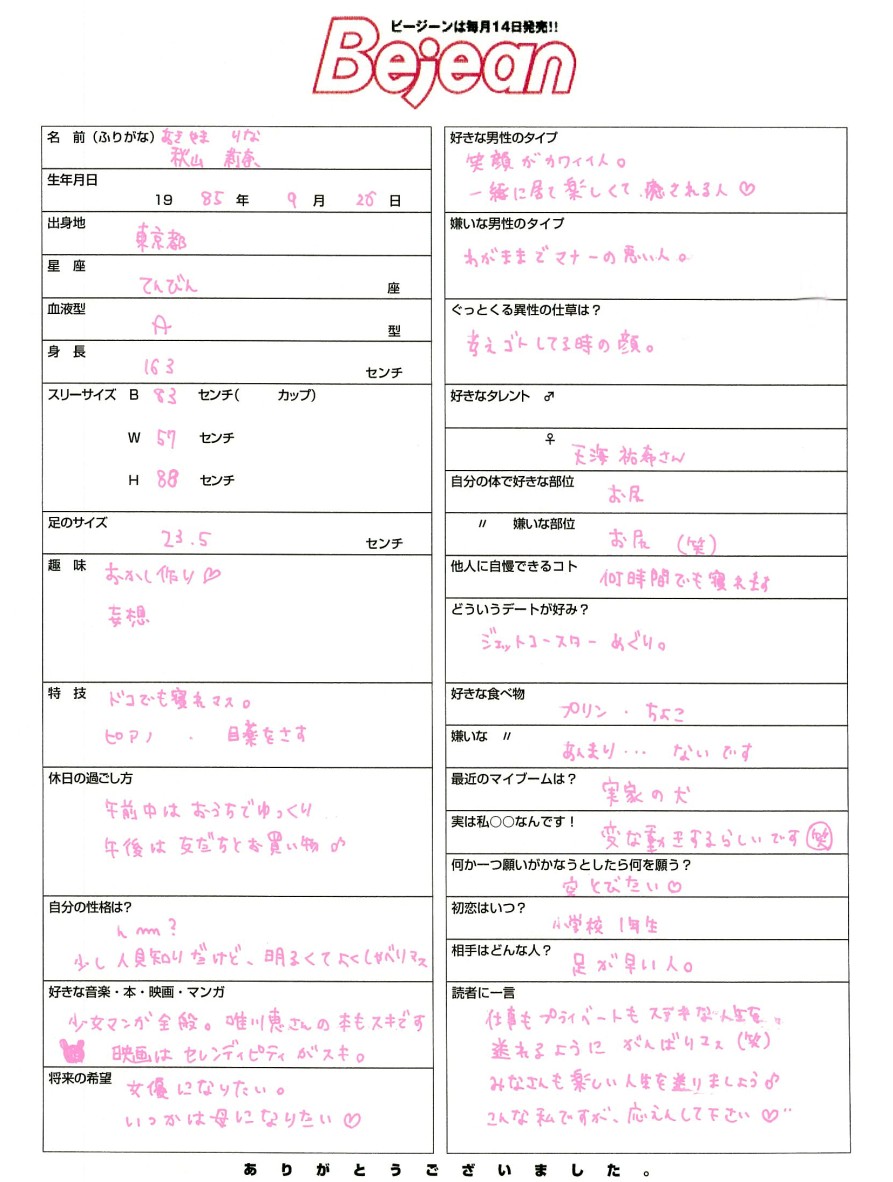 ビージーンは毎月14日発売!!
Bejean
名　前（ふりがな） あきやま りな
秋山 莉奈
生年月日
19 85 年 9 月 26 日
出身地
東京都
星　座
てんびん 座
血液型
A 型
身　長
163 センチ
スリーサイズ B 83 センチ( カップ)
W 57 センチ
H 88 センチ
足のサイズ
23.5 センチ
趣　味 おかし作り♡
妄想
特　技 ドコでも寝れマス。
ピアノ ・ 目薬をさす
休日の過ごし方
午前中は おうちでゆっくり
午後は 友だちとお買い物♪
自分の性格は?
少し人見知りだけど、明るくてよくしゃべりマス
好きな音楽・本・映画・マンガ
少女マンガ全般。唯川恵さんの本もスキです
映画は セレンディピティ がスキ。
将来の希望 女優になりたい。
いつかは母になりたい♡
好きな男性のタイプ
笑顔がカワイイ人。
一緒に居て楽しくて、癒される人♡
嫌いな男性のタイプ
わがままでマナーの悪い人。
ぐっとくる異性の仕草は?
考えゴトしてる時の顔。
好きなタレント ♂
♀ 天海 祐希さん
自分の体で好きな部位 お尻
〃 嫌いな部位 お尻 (笑)
他人に自慢できるコト 何時間でも寝れます
どういうデートが好み?
ジェットコースター めぐり。
好きな食べ物
プリン ・ ちょこ
嫌いな 〃 あんまり… ないです
最近のマイブームは? 実家の犬
実は私○○なんです! 変な動きするらしいです(笑)
何か一つ願いがかなうとしたら何を願う?
空とびたい♡
初恋はいつ? 小学校 1年生
相手はどんな人? 足が早い人。
読者に一言
仕事もプライベートもステキな人生を
送れるように がんばりマス(笑)
みなさんも楽しい人生を送りましょう♪
こんな私ですが、応えんして下さい♡
ありがとうございました。